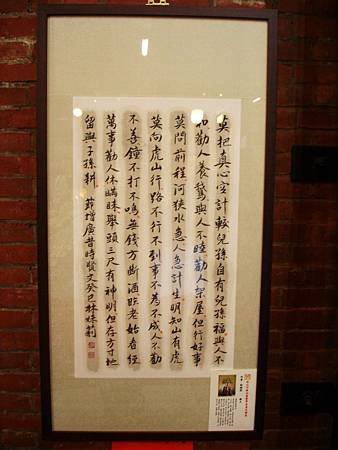 莫把真心空計較兒孫自有兒孫福與人不
和勸人養鵞與人不睦勸人架屋但行好事
莫問前程河狹水急人急計生明知山有虎
莫向虎山行路不行不到事不為不成人不勸
不善鐘不打不鳴無錢方斷酒臨老始看經
萬事勸人休瞞昧舉頭三尺有神明但存方寸地
留與子孫耕 節增廣昔時賢文癸巳林妹莉